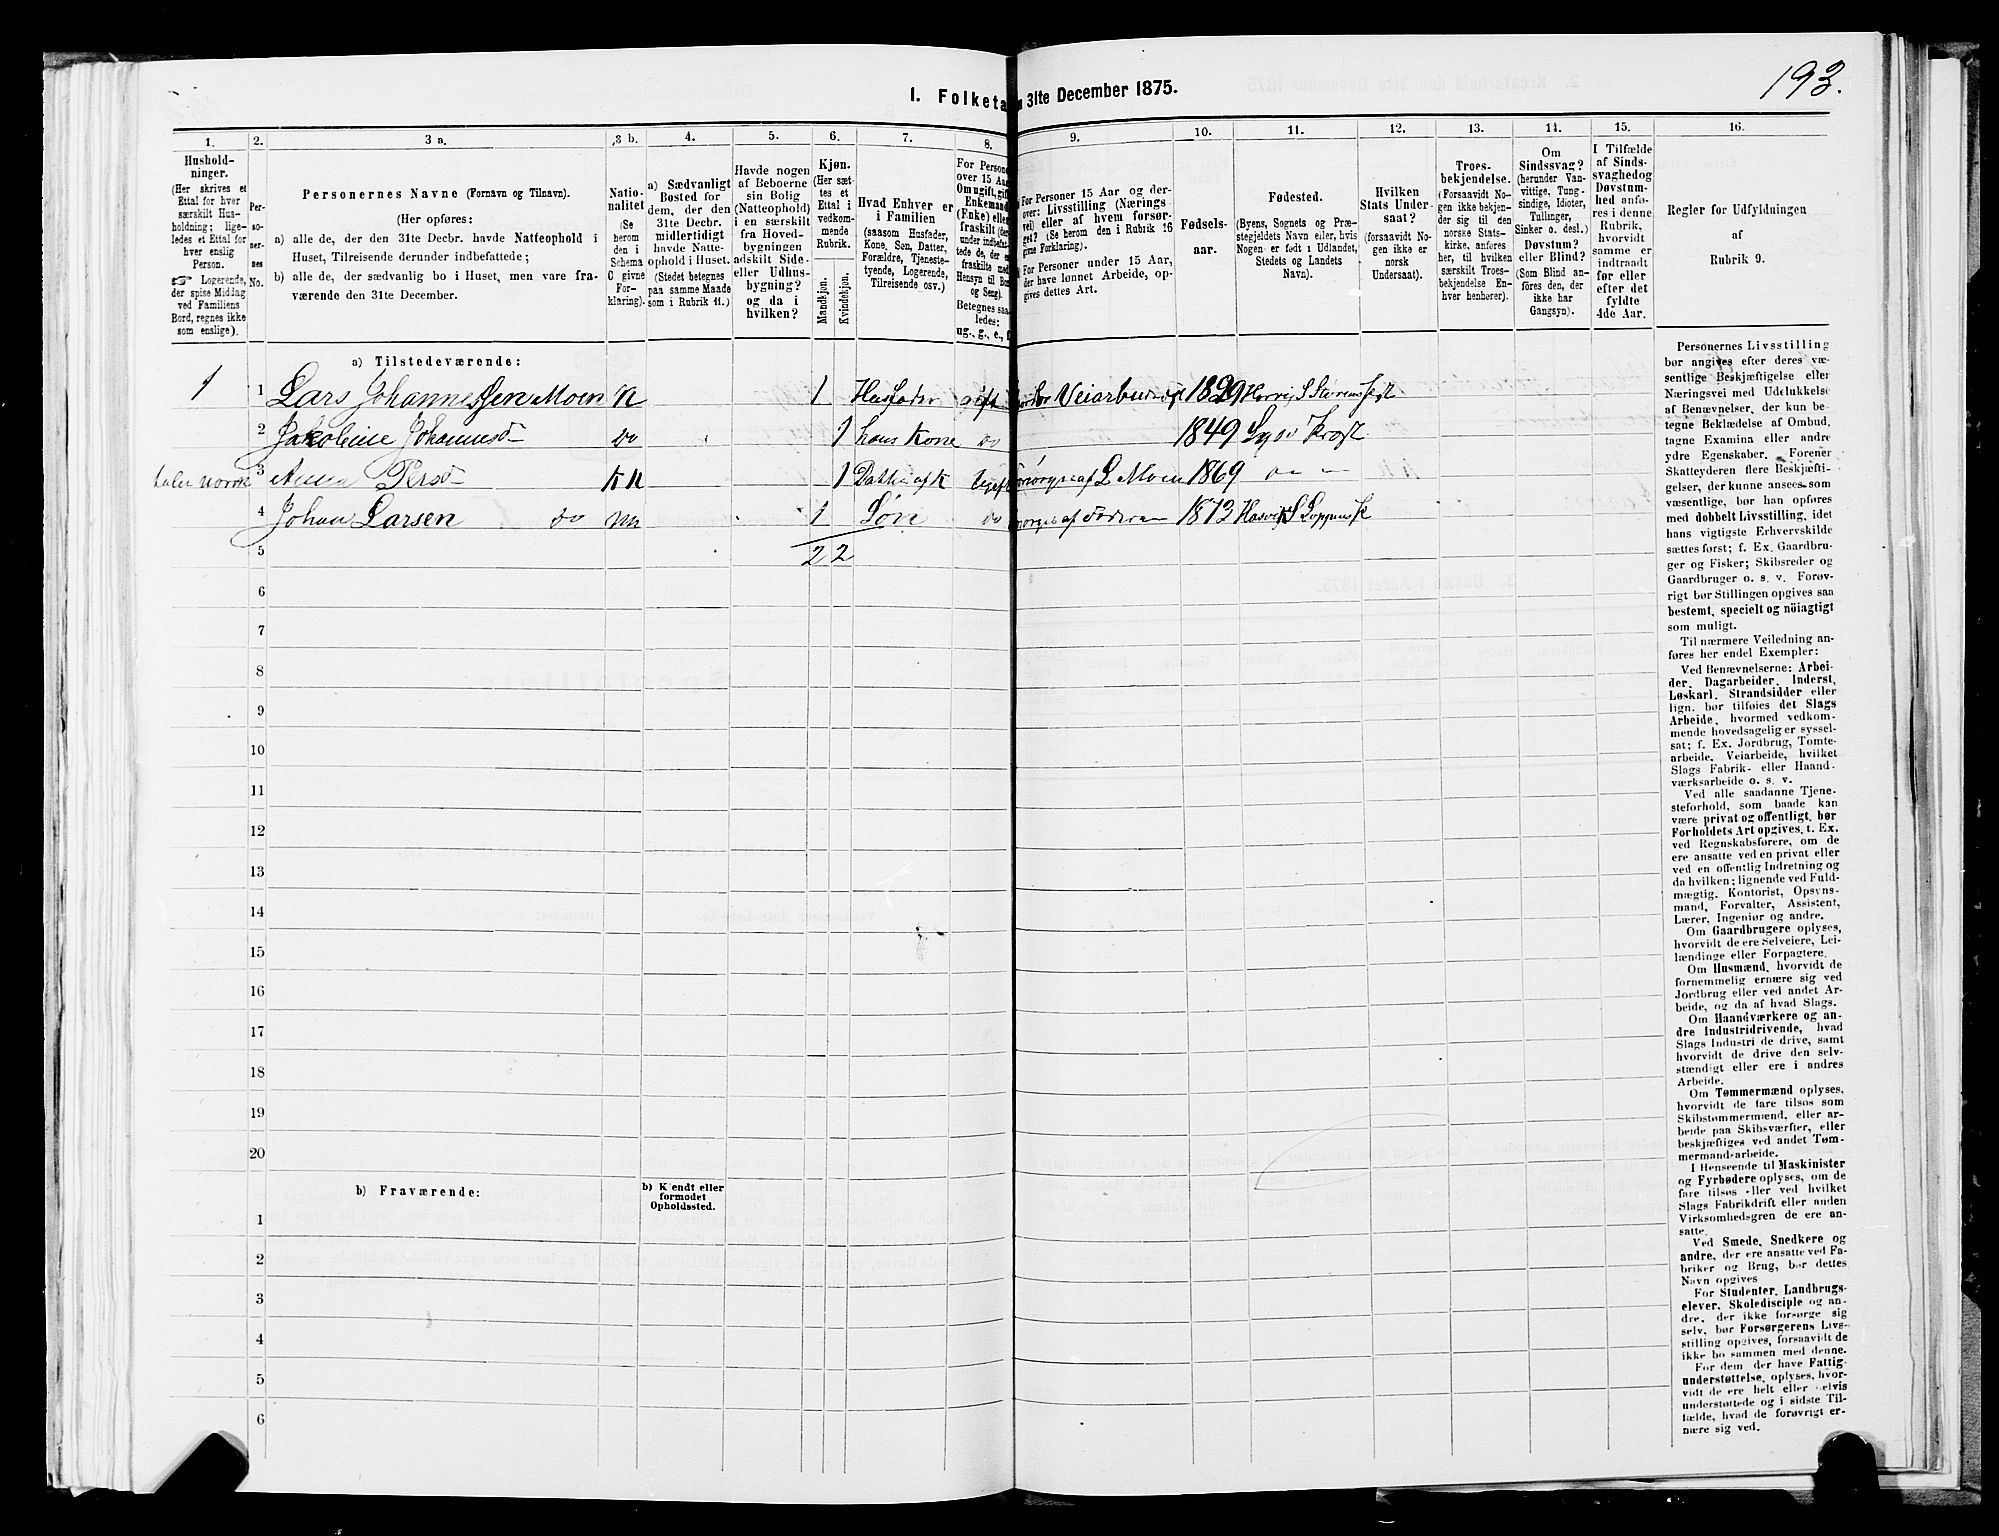 193.
I. Folketa
n 31te December 1875.
1. 2. 3 a. 3 b. 4. 5. 6. 7. 8. 9. 10. 11. 12. 13. 14. 15. 16.
Hushold-
ninger.
(Her skrives et
Ettal for hver
særskilt Hus-
holdning; lige-
ledes et Ettal for
hver enslig
Person.
☞ Logerende,
der spise Middag
ved Familiens
Bord, regnes ikke
som enslige).
Per-
so-
ner-
nes
No.
Personernes Navne (Fornavn og Tilnavn).
(Her opføres:
a) alle de, der den 31te Decbr. havde Natteophold i
Huset, Tilreisende derunder indbefattede;
b) alle de, der sædvanlig bo i Huset, men vare fra-
værende den 31te December.
Natio-
nalitet
(Se
herom
den i
Schema
C givne
For-
klaring).
a) Sædvanligt
Bosted for
dem, der den
31te Decbr.
midlertidigt
havde Natte-
ophold i Huset.
(Stedet betegnes
paa samme Maade
som i Rubrik 11.)
Havde nogen
af Beboerne
sin Bolig
(Natteophold)
i en særskilt
fra Hoved-
bygningen
adskilt Side-
eller Udhus-
bygning?
og da i
hvilken?
Kjøn.
(Her sæt-
tes et
Ettal i
vedkom-
mende
Rubrik.
Mandkjøn.
Kvindekjøn.
Hvad Enhver er
i Familien
(saasom Husfader,
Kone, Søn, Datter,
Forældre, Tjeneste-
tyende, Logerende,
Tilreisende osv.)
For Persone
over 15 Aar
Om ugift, gift
Enkemand
(Enke) eller
fraskilt (der-
under indbefat-
tede de, der ere
fraskilte med
Hensyn til Bord
og Seng).
Betegnes saa-
ledes:
ug., g., e., f.
For Personer 15 Aar og der-
over: Livsstilling (Nærings
vei) eller af hvem forsør-
get? (Se herom den i Rubrik 16
givne Forklaring).
For Personer under 15 Aar,
der have lønnet Arbeide, op-
gives dettes Art.
Fødsels-
aar.
Fødested.
(Byens, Sognets og Præ-
stegjeldets Navn eller, hvis
Nogen er født i Udlandet,
Stedets og Landets
Navn).
Hvilken
Stats Under-
saat?
(forsaavidt No-
gen ikke er
norsk
Undersaat).
Troes-
bekjendelse.
(Forsaavidt No-
gen ikke bekjen-
der sig til den
norske Stats-
kirke, anføres
her, til hvilken
særskilt Troes-
bekjendelse En-
hver henhører).
Om
Sindssvag?
(herunder Van-
vittige, Tung-
sindige, Idioter,
Tullinger,
Sinker o. desl.)
Døvstum?
eller Blind?
(Som Blind an-
føres den, der
ikke har
Gangsyn).
I Tilfælde
af Sinds-
svaghedog
Døvstum-
hed anfø-
res i denne
Rubrik,
hvorvidt
samme er
indtraadt
før eller
efter det
fyldte
4de Aar.
Regler for Udfyldningen
af
Rubrik 9.
a) Tilstedeværende:
1 1 Lars Johannessen Moen N 1 Husfader gift Veiarbu 1829 S
2 Jakobine Johannesd do 1 hans Kone do 1849
3 Anna Persd KN 1 1869
4 Johan Larsen do 1 Søn do af Faderen 1873 Hasvig S Loppens
5 2 2
6
7
8
9
10
11
12
13
14
15
16
17
18
19
20
b) Fraværende:
b) Kendt eller
formodet
Opholdssted.
1
2
3
4
5
6
Personernes Livsstilling
bør angives efter deres væ-
sentlige Beskjæftigelse eller
Næringsvei med Udelukkelse
af Benævnelser, der kun be-
tegne Beklædelse af Ombud,
tagne Examina eller andre
ydre Egenskaber. Forener
Skatteyderen flere Beskjæfti-
gelser, der kunne ansees som
væsentlige, bør han opføres
med dobbelt Livsstilling, idet
hans vigtigste Erhvervskilde
sættes først; f. Ex. Gaardbru-
ger og Fisker; Skibsreder og
Gaardbruger o. s. v. Forøv-
rigt bør Stillingen opgives saa
bestemt, specielt og nöiagtigt
som muligt.
Til nærmere Veiledning an-
føres her endel Exempler:
Ved Benævnelserne: Arbei-
der, Dagarbeider, Inderst,
Løskarl, Strandsidder eller
lign. bør tilføies det Slags
Arbeide, hvormed vedkom-
mende hovedsagelig er syssel-
sat; f. Ex. Jordbrug, Tomte-
arbeide, Veiarbeide, hvilket
Slags Fabrik- eller Haand-
værksarbeide o. s. v.
Ved alle saadanne Tjene-
steforhold, som baade kan
være privat og offentligt, bør
Forholdets Art opgives, t. Ex.
ved Regnskabsførere, om de
ere ansatte ved en privat eller
ved en offentlig Indretning og
da hvilken; lignende ved Fuld-
mægtig, Kontorist, Opsyns-
mand, Forvalter, Assistent,
Lærer, Ingeniør og andre.
Om Gaardbrugere oplyses,
hvorvidt de ere Selveiere, Lei-
lændinge eller Forpagtere.
Om Husmænd, hvorvidt de
fornemmelig ernære sig ved
Jordbrug eller ved andet Ar-
beide, og da af hvad Slags.
Om Haandværkere og an-
dre Industridrivende, hvad
Slags Industri de drive, samt
hvorvidt de drive den selv-
stændigt eller ere i andres
Arbeide.
Om Tømmermænd oplyses,
hvorvidt de fare tilsøs som
Skibstømmermænd, eller ar-
beide paa Skibsværfter, eller
beskjæftiges ved andet Tøm-
mermandsarbeide.
I Henseende til Maskinister
og Fyrbødere oplyses, om de
fare tilsøs eller ved hvilket
Slags Fabrikdrift eller anden
Virksomhedsgren de ere an-
satte.
Ved Smede, Snedkere og
andre, der ere ansatte ved Fa-
briker og Brug, bør dettes
Navn opgives
For Studenter, Landbrugs-
elever, Skoledisciple og an-
dre, der ikke forsørge sig
selv, bør Forsørgerens Livs-
stilling opgives, forsaavidt de
ikke bo sammen med denne.
For dem der have Fattig-
understøttelse, oplyses, hvor-
vidt de ere helt eller delvis
understøttede og i sidste Til-
fælde, hvad de forøvrigt er-
nære sig ved.